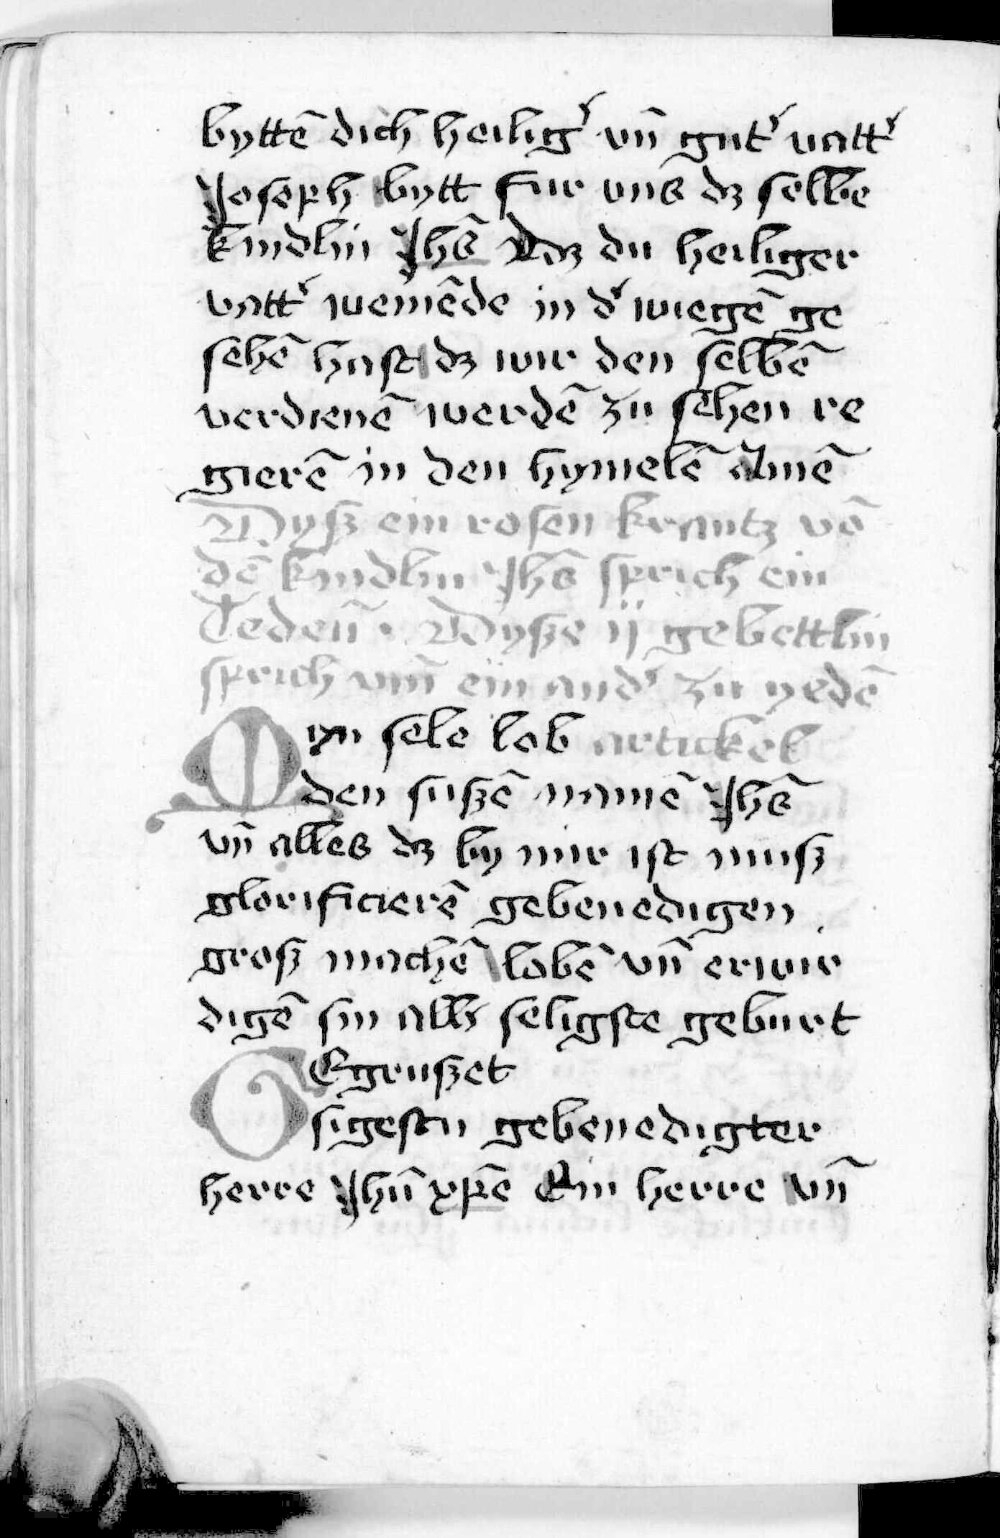 byttē dich heilig̾ vn̄ gut̾ vatt̾
Joseph bytt fur vns dz selbe
kindlin Jhs̄ Daz du heiliger
vatt̾ weinēde in d̾ wiegē ge
sehē hast dz wir den selbē
verdienē werdē zu sehen re
gierē in den hymelē Amē
Dysz ein rosen krantz vō
dē kindlin Jhs̄ sprich ein
Tedeū . Dysze ij gebettlin
sprich vm̄ ein and̾ zu yedē
Myn sele lob artickel
den suszē namē Jhs̄
vn̄ alles dz by mir ist musz
glorificierē gebenedigen
grosz machē lobē vn̄ erwir
digē sin allz seligste geburt
GEgruszet
sigestu gebenedigter
herre Jhū xp̄e Ein herre vn̄